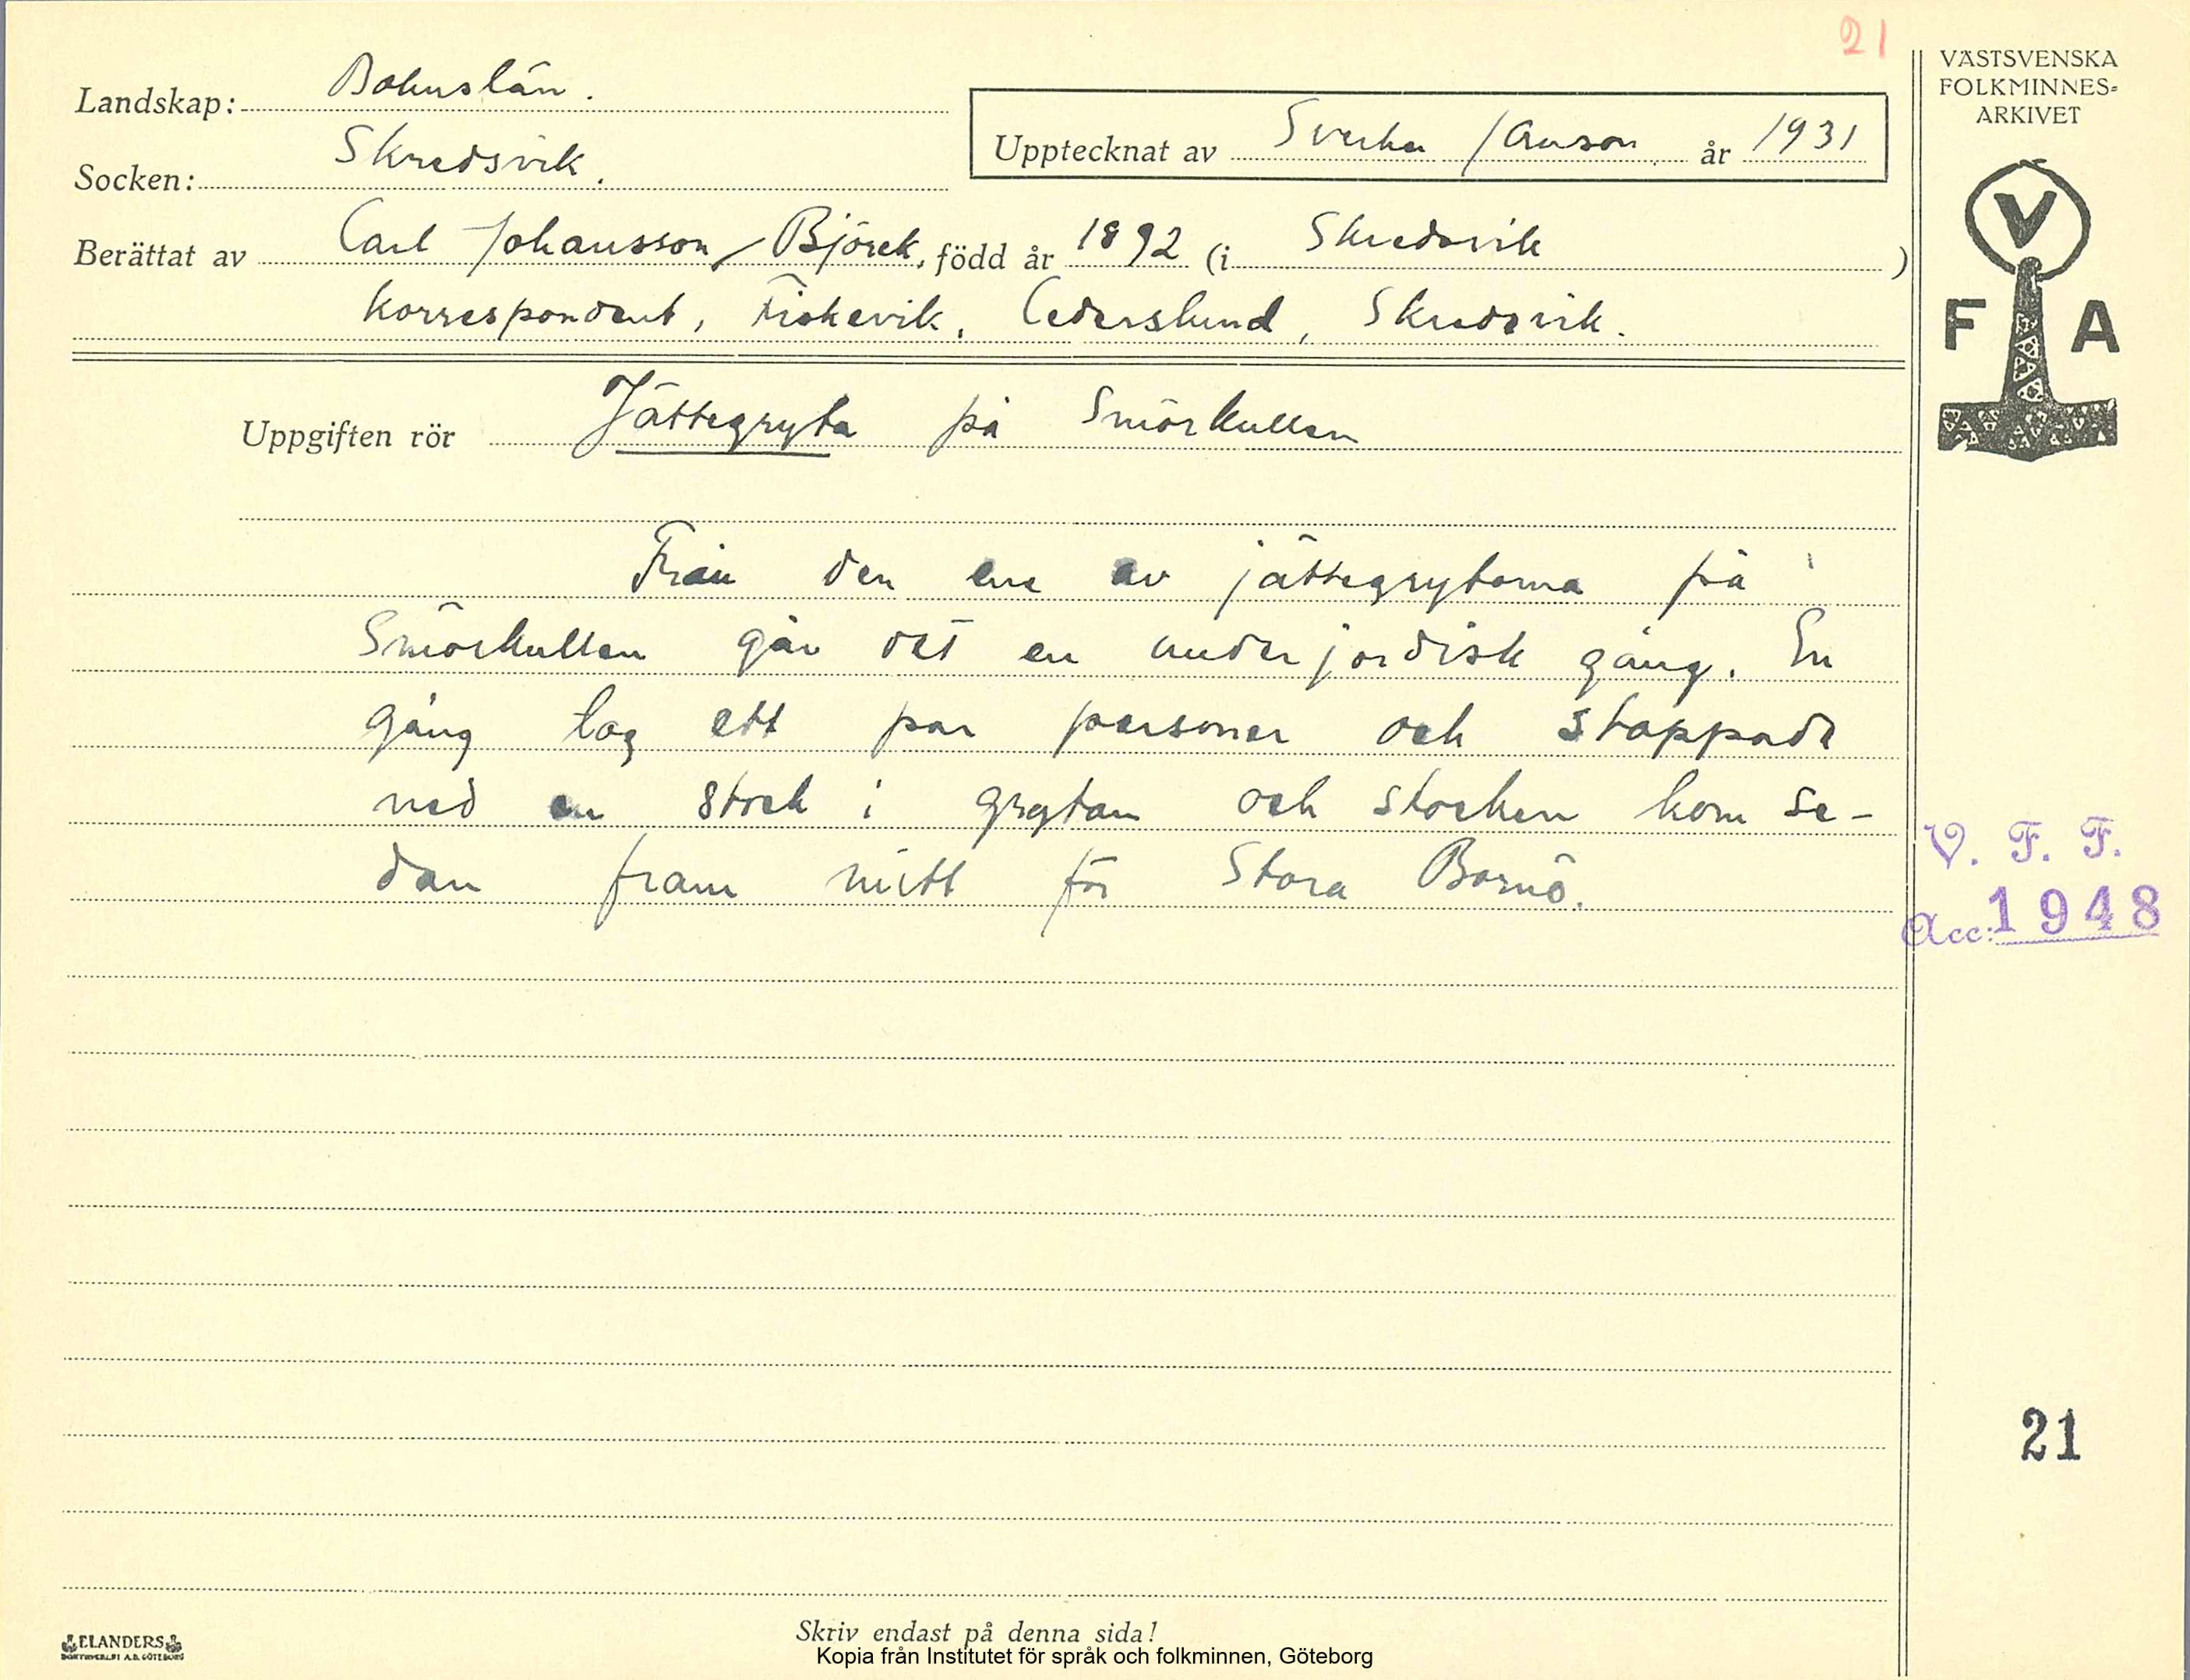 21
VÄSTSVENSKA
FOLKMINNES=
ARKIVET
Landskap: Bohuslän.
Upptecknat av Sverker Janson år 1931
Socken: Skredsvik.
Berättat av Carl Johansson Björck, född år 1892 (i Skredsvik )
korrespondent, Fiskevik, Cederslund, Skredsvik.
V
F A
Uppgiften rör Jättegryta på Smörkullen
Från den ene av jättegrytorna på
Smörkullen går det en underjordisk gång. En
gång tog ett par personer och stoppade
ned en stock i grytan och stocken kom se-
dan fram mitt för Stora Bornö.
V. F. F.
Acc: 1948
21
ELANDERS
BOKTRYCKERI A.B. GÖTEBORG
Skriv endast på denna sida!
Kopia från Institutet för språk och folkminnen, Göteborg